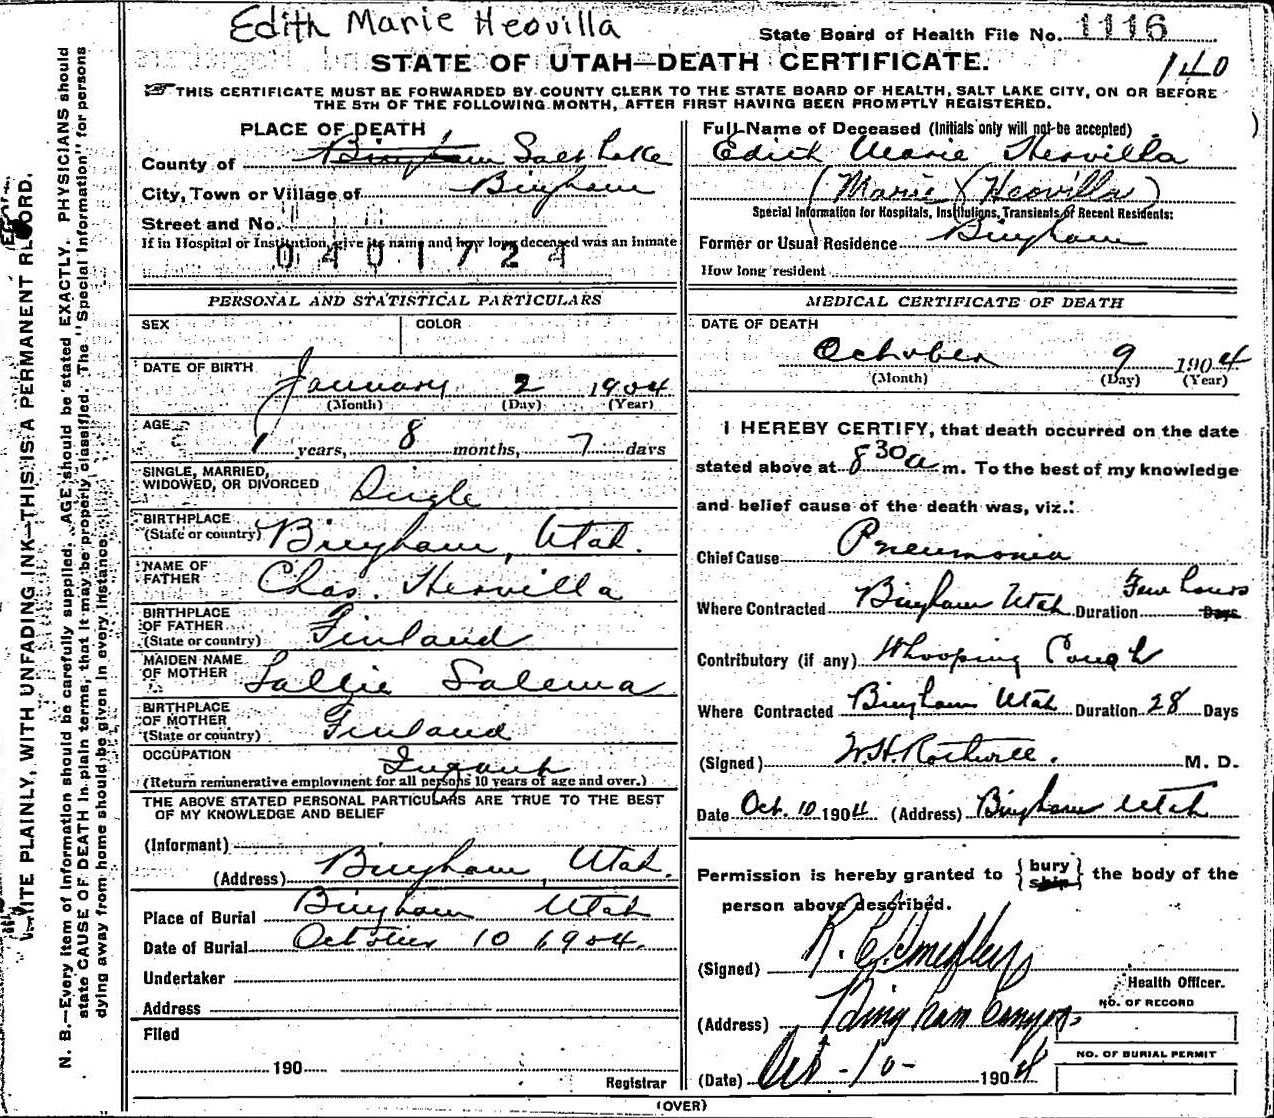 Edith Marie Heovilla
State Board of Health File No. 1116
STATE OF UTAH—DEATH CERTIFICATE.
140
THIS CERTIFICATE MUST BE FORWARDED BY COUNTY CLERK TO THE STATE BOARD OF HEALTH, SALT LAKE CITY, ON OR BEFORE
THE 5TH OF THE FOLLOWING MONTH, AFTER FIRST HAVING BEEN PROMPTLY REGISTERED.
WRITE PLAINLY, WITH UNFADING INK—THIS IS A PERMANENT RECORD.
N. B.—Every item of information should be carefully supplied. AGE should be stated EXACTLY. PHYSICIANS should
state CAUSE OF DEATH in plain terms, that it may be properly classified. The "Special Information" for persons
dying away from home should be given in every instance.
PLACE OF DEATH
County of Bingham Salt Lake
City, Town or Village of Bingham
Street and No.
If in Hospital or Institution, give its name and how long deceased was an inmate
0401724
PERSONAL AND STATISTICAL PARTICULARS
SEX
COLOR
DATE OF BIRTH
January 2 1904
(Month) (Day) (Year)
AGE
1 years, 8 months, 7 days
SINGLE, MARRIED,
WIDOWED, OR DIVORCED Single
BIRTHPLACE
(State or country) Bingham, Utah.
NAME OF
FATHER Chas. Heovilla
BIRTHPLACE
OF FATHER
(State or country) Finland
MAIDEN NAME
OF MOTHER Sallie Salema
BIRTHPLACE
OF MOTHER
(State or country) Finland
OCCUPATION Infant
(Return remunerative employment for all persons 10 years of age and over.)
THE ABOVE STATED PERSONAL PARTICULARS ARE TRUE TO THE BEST
OF MY KNOWLEDGE AND BELIEF
(Informant)
(Address) Bingham, Utah.
Place of Burial Bingham Utah
Date of Burial October 10 1904.
Undertaker
Address
Filed
190
Registrar
Full Name of Deceased (Initials only will not be accepted)
Edith Marie Heovilla
(Marie Heovilla)
Special Information for Hospitals, Institutions, Transients or Recent Residents:
Former or Usual Residence Bingham
How long resident
MEDICAL CERTIFICATE OF DEATH
DATE OF DEATH
October 9 1904
(Month) (Day) (Year)
I HEREBY CERTIFY, that death occurred on the date
stated above at 8 30 a m. To the best of my knowledge
and belief cause of the death was, viz.:
Chief Cause Pneumonia
Where Contracted Bingham Utah Duration Few hours Days
Contributory (if any) Whooping Cough
Where Contracted Bingham Utah Duration 28 Days
(Signed) W.H. Rothwell. M. D.
Date Oct. 10 1904 (Address) Bingham Utah
Permission is hereby granted to {bury ship} the body of the
person above described.
(Signed) R. C. Smedley
Health Officer.
(Address) Bingham Canyon
NO. OF RECORD
NO. OF BURIAL PERMIT
(Date) Oct-10- 1904
(OVER)